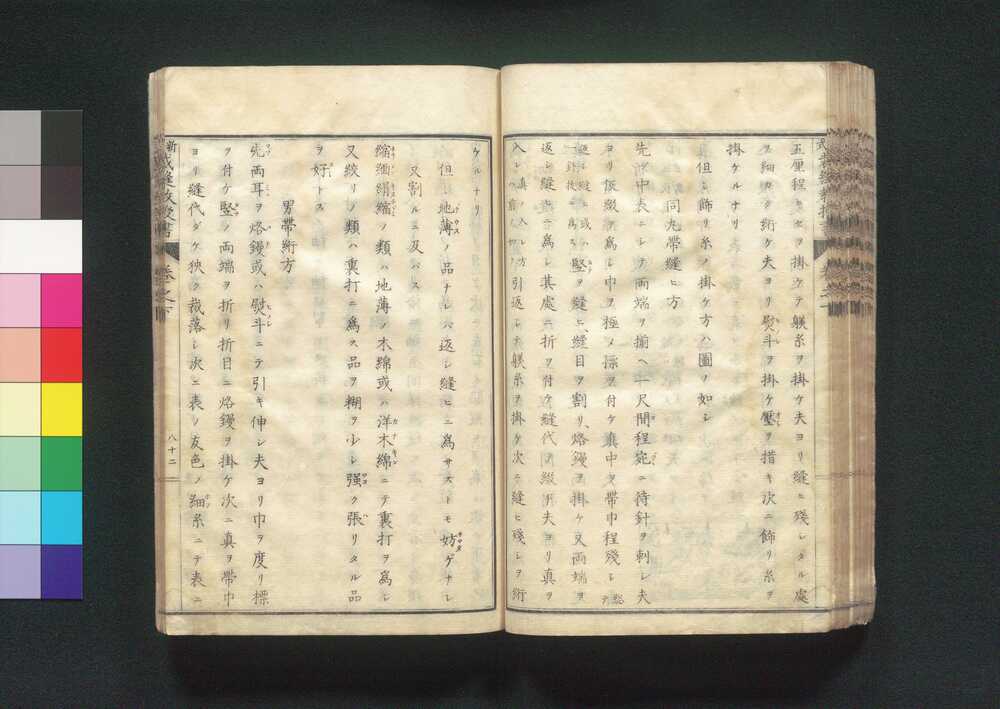 五厘程ヒセヲ掛ケテ躾糸ヲ掛ケ夫ヨリ縫ヒ殘シタル處
ヲ細カク絎ケ夫ヨリ熨斗ヲ掛ケ壓ヲ措キ次ニ飾リ糸ヲ
掛ケルナリ
但シ飾リ糸ノ掛ケ方ハ圖ノ如シ
同丸帶縫ヒ方
先ツ中表ニシテ両端ヲ揃ヘ一尺間程宛ニ待針ヲ刺シ夫
ヨリ仮綴ヲ為シ巾ヲ極メ標ヲ付ケ真中ヲ帶巾程殘シ
竪ヲ縫ヒ、縫目ヲ割リ、烙鏝ヲ掛ケ又両端ヲ
返シ縫ヒニ為シ其處ニ折ヲ付ケ縫代ヲ綴リ夫ヨリ真ヲ
入レ引返シテ躾糸ヲ掛ケ次ニ縫ヒ殘シヲ絎
ケルナリ
但シ地薄ノ品ナレバ返シ縫ヒニ為サストモ妨ゲナシ
又割ルニ及バス
縮緬絹縮ノ類ハ地薄ノ木綿或ハ洋木綿ニテ裏打ヲ為シ
又絞リノ類ハ裏打ニ為ス品ヲ糊ヲ少シ强ク張リタル品
ヲ好トス
男帶絎方
先両耳ヲ烙鏝或ハ熨斗ニテ引キ伸シ夫ヨリ巾ヲ度リ標
ヲ付ケ竪ノ両端ヲ折リ折目ニ烙鏝ヲ掛ケ次ニ真ヲ帶巾
ヨリ縫代ダケ狹ク裁落シ次ニ表ノ友色ノ細糸ニテ表ニ
八十二